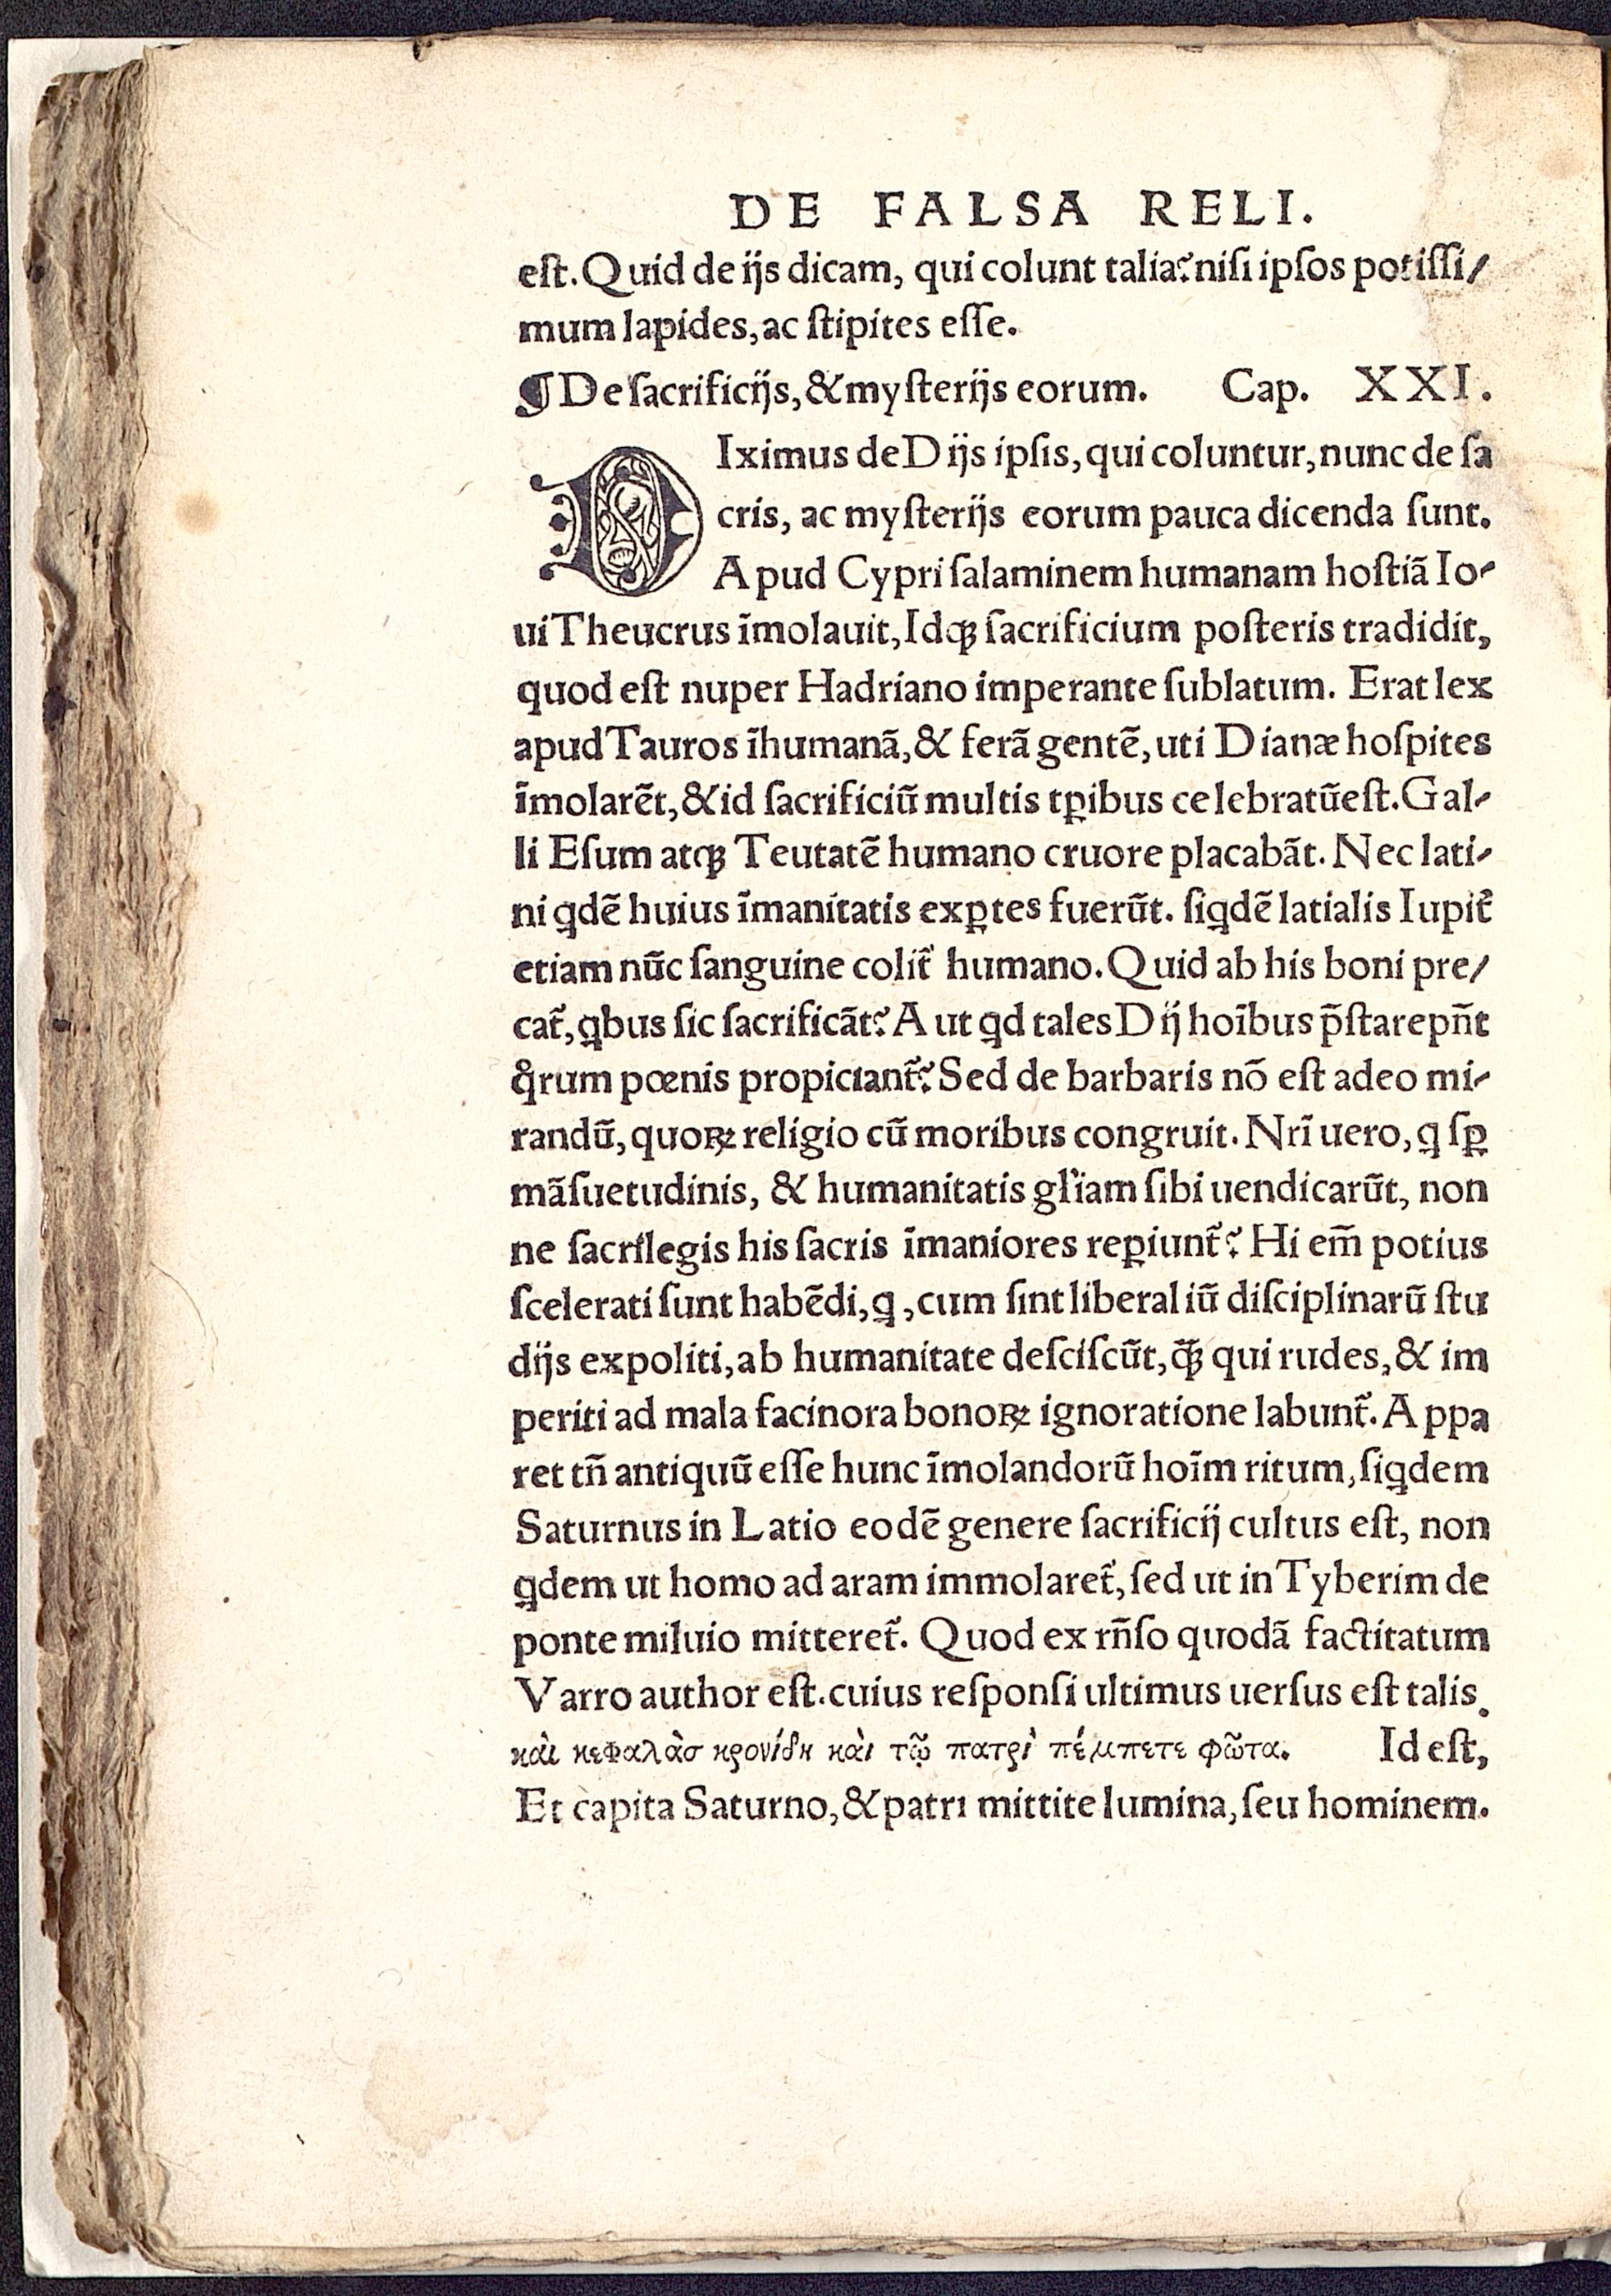 DE FALSA RELI.
eſt. Quid de ijs dicam, qui colunt talia? niſi ipſos potiſſi/
mum lapides, ac ſtipites eſſe.
¶ De ſacrificijs, & myſterijs eorum. Cap. XXI.
DIximus de Dijs ipſis, qui coluntur, nunc de ſa
cris, ac myſterijs eorum pauca dicenda ſunt.
Apud Cypri ſalaminem humanam hoſtiã Io-
ui Theucrus ĩmolauit, Idqꝫ ſacrificium poſteris tradidit,
quod eſt nuper Hadriano imperante ſublatum. Erat lex
apud Tauros ĩhumanã, & ferã gentẽ, uti Dianæ hoſpites
ĩmolarẽt, & id ſacrificiũ multis tꝑibus celebratũ eſt. Gal-
li Eſum atqꝫ Teutatẽ humano cruore placabãt. Nec lati-
ni ꝗdẽ huius ĩmanitatis exꝑtes fuerũt. ſiꝗdẽ latialis Iupit̃
etiam nũc ſanguine colit̃ humano. Quid ab his boni pre/
cat̃, ꝗbus ſic ſacrificãt? Aut ꝗd tales Dij hoĩbus p̃ſtare pñt
qͦrum pœnis propiciant̃? Sed de barbaris nõ eſt adeo mi-
randũ, quoꝝ religio cũ moribus congruit. Nrĩ uero, ꝗ ſꝑ
mãſuetudinis, & humanitatis gl̃iam ſibi uendicarũt, non
ne ſacrilegis his ſacris ĩmaniores reꝑiunt̃? Hi em̃ potius
ſcelerati ſunt habẽdi, ꝗ, cum ſint liberaliũ diſciplinarũ ſtu
dijs expoliti, ab humanitate deſciſcũt, q̃ꝫ qui rudes, & im
periti ad mala facinora bonoꝝ ignoratione labunt̃. Appa
ret tñ antiquũ eſſe hunc ĩmolandorũ hoĩm ritum, ſiꝗdem
Saturnus in Latio eodẽ genere ſacrificij cultus eſt, non
ꝗdem ut homo ad aram immolaret̃, ſed ut in Tyberim de
ponte miluio mitteret̃. Quod ex rñſo quodã factitatum
Varro author eſt. cuius reſponſi ultimus uerſus eſt talis.
κὰι κεφαλὰσ κρονίδη κὰι τῷ πατρὶ πέμπετε φῶτα. Id eſt,
Et capita Saturno, & patri mittite lumina, ſeu hominem.